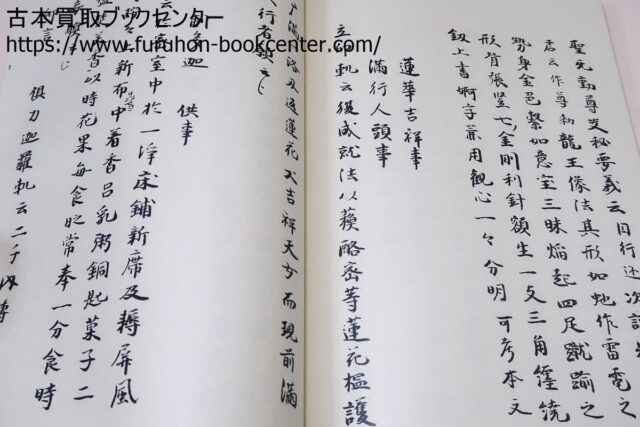 古本買取ブックセンター
https://www.furuhon-bookcenter.com/
聖无動尊決秘要義云
尊勅龍王像法其形如虵作雷電之
勢身金色繫如意宝三昧焔起四足蹴踰之
形背張竪七金剛利針額生一支三角纏繞
釼上書婀字兼用観心一々分明可考本文
蓮華吉祥事
滿行人頭事
立軌云後成就法以蘓酪密等蓮花榅護
滿洛叉通蓮花大吉祥天女而現前滿
行者
供事
室中於一浄床鋪新席及耨屏風
新布中着香呂乳粥銅匙菓子二
香以時花果每食皆常奉一分食時
俱力迦羅軌云二手